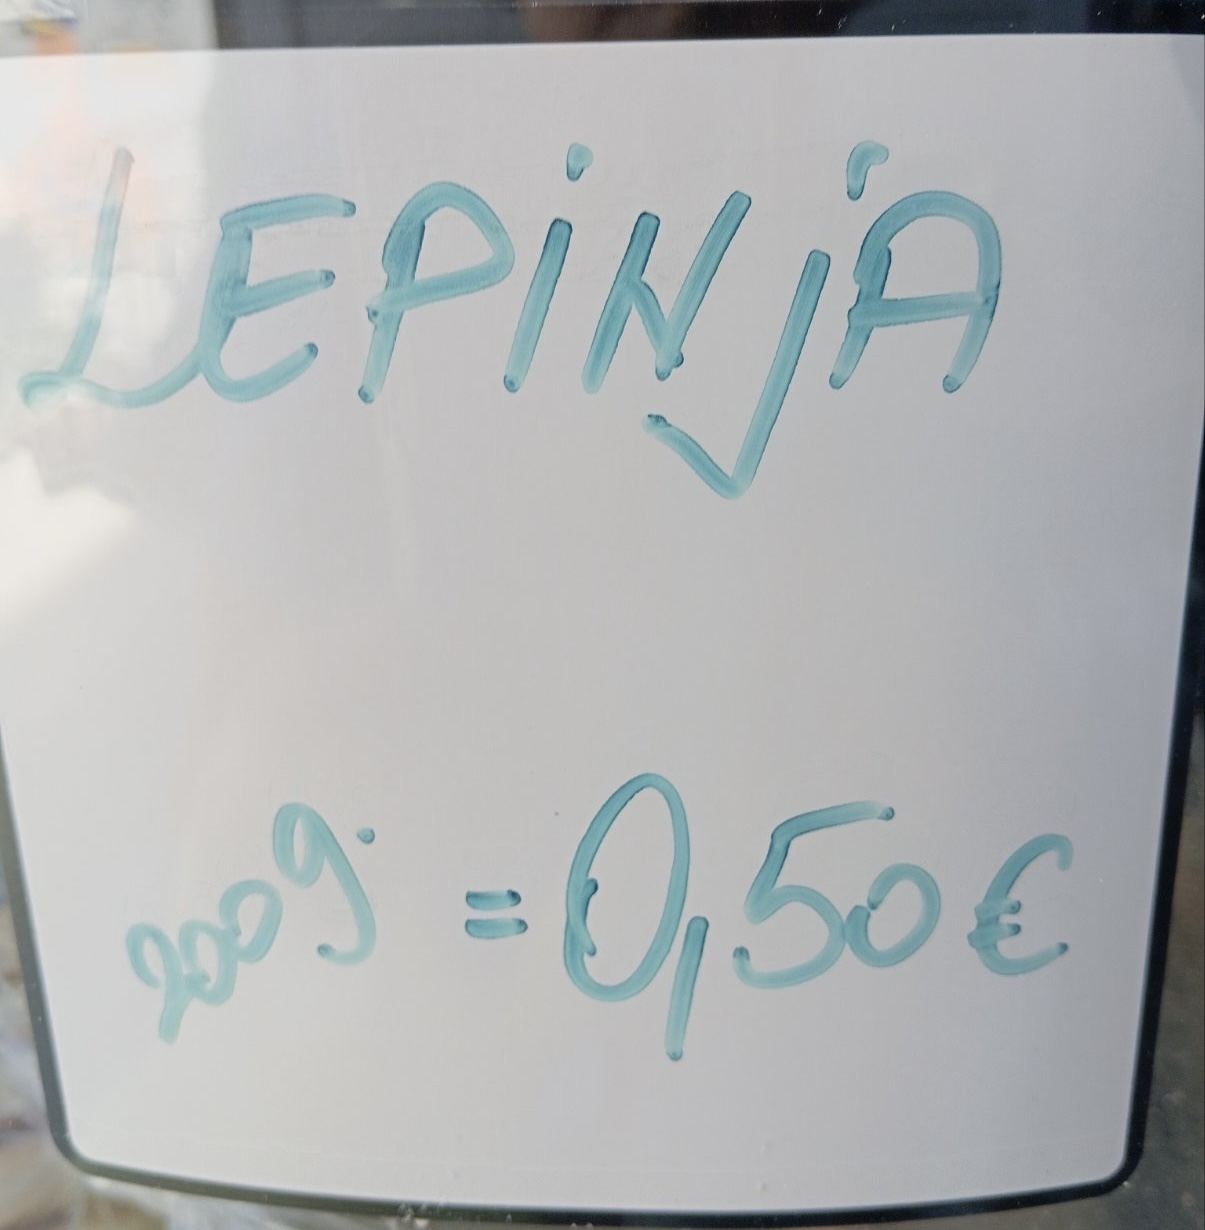 LEPiNjA
200g. = 0,50€